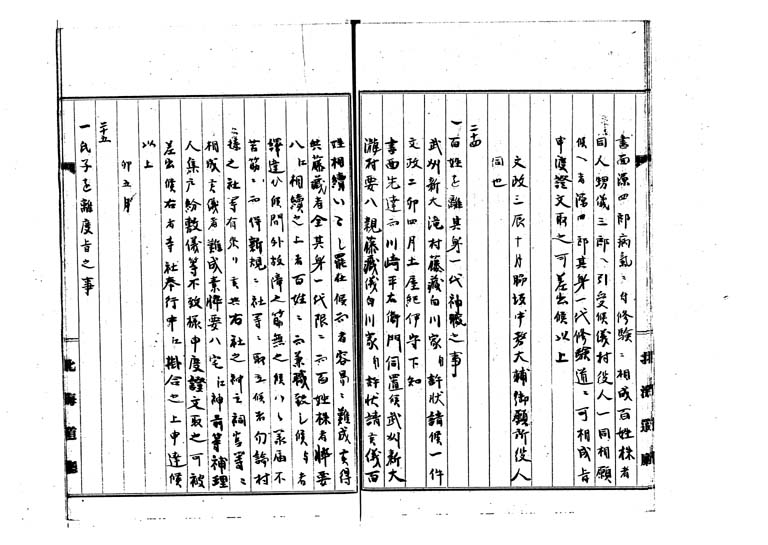 書面源四郎病気ニ付修験ニ相成百姓株者
同人甥儀三郎へ引受候儀村役人一同相願
候ハヽ者源四郎其身一代修験道ニ可相成旨
申渡證文取之可差出候以上
文政三辰十月脇坂中務大輔御願所役人
伺也
二十四
一百姓を離其身一代神職之事
武州新大滝村藤蔵白川家ゟ許状請候一件
文政二卯四月土屋紀伊守下知
書面先達而川崎平右衛門伺置候武州新大
滝村要八親藤蔵儀白川家ゟ許状請度儀百
姓相続いたし罷在候而者容易ニ難成度得
共藤蔵者全其身一代限ニ而百姓株者倅要
八江相續之上者百姓ニ而兼職致し候与者
譯違ひ候間外故障之筋無之候ハヽ承届不
苦筋ニ而併新規ニ社等ニ取立候者勿論村
持之社等有来り候共右社之神主祠官等ニ
相成度儀者難成素倅要八宅江神前等補理
人集メ紛敷儀等不致様申渡證文取之可被
差出候右者寺社奉行中江掛合之上申達候
以上
卯五月
二十五
一氏子を離度旨之事
北海道廳